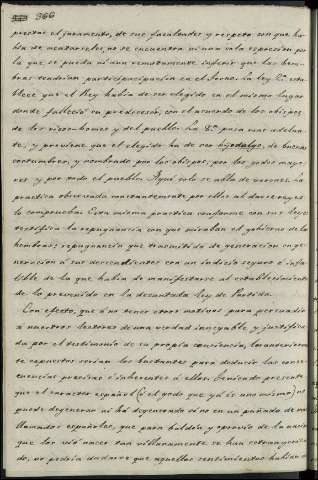 366
prestar el juramento, de sus facultades y respeto con que ha-
bia de acatarseles, no se encuentra ni una sola espresion por
la que se pueda ni aun remotamente inferir que las hem-
bras tendrian participacipación en el Trono. La ley 2ª esta-
blece que el Rey habia de ser elegido en el mismo lugar
donde falleció su predecesór, con el acuerdo de los obispos,
de los ricos-homes y del pueblo. La 8ª pasa mas adelan-
te, y previene que el elegido ha de ser hijodalgo, de buenas
costumbres, y nombrado por los obispos, por los godos mayo-
res y por todo el pueblo. Aqui solo se abla de varones. La
practica observada constantemente por ellos al darse reyes
lo comprueba. Esta misma practica conforme con sus leyes
testifica la repugnancia con que miraban el gobierno de las
hembras; repugnancia que trasmitida de generacion en ge-
neracion á sus descendientes era un indicio seguro é infa-
lible de la que habia de manifestarse al establecimiento
de lo prevenido en la decantada ley de Partida.
Con efecto, que á no tener otros motivos para persuadir
á nuestros lectores de una verdad innegable y justifica-
da por el testimonio de su propia conciencia, los anteriormen-
te espuestos serian los bastantes para deducir las conse-
cuencias precisas é inherentes á ellos. Teniendo presente
que el caracter español (ó el godo que ya és uno mismo) no
puede degenerar ni há degenerado sino en un puñado de mal
llamados españoles, que para baldón y oprovio de la nacion
que los vió nacer tan villanamente se han estrangeriza-
do, no podria dudarse que aquellos sentimientos habian de